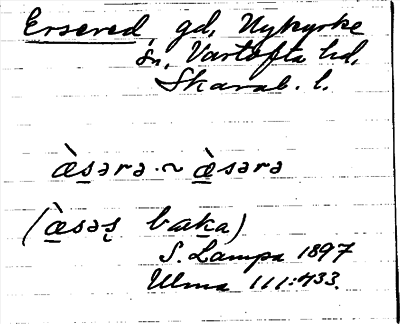 Ersered, gd, Nykyrke
sn, Vartofta hd,
Skarab. l.
æ̀sərə ~ æ̀sərə
(æ̀səʂ baka)
S. Lampa 1897
Ulma 111:433.